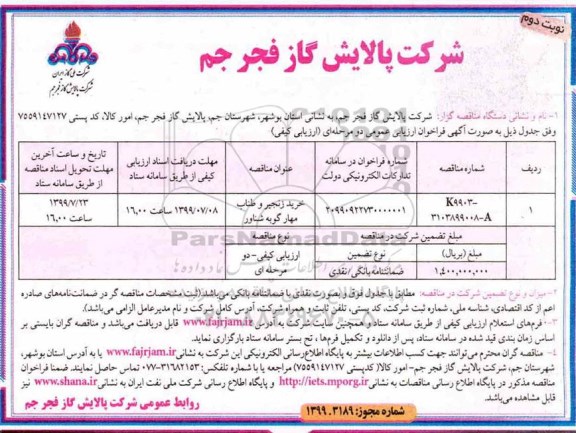 نوبت دوم
شرکت پالایش گاز فجر جم
شرکت ملی گاز ایران
شرکت پالایش گاز فجر جم
۱- نام و نشانی دستگاه مناقصه گزار: شرکت پالایش گاز فجر جم، به نشانی استان بوشهر، شهرستان جم، پالایش گاز فجر جم، امور کالا، کد پستی ۷۵۵۹۱۴۷۱۲۷
وفق جدول ذیل به صورت آگهی فراخوان ارزیابی عمومی دو مرحله‌ای (ارزیابی کیفی)
ردیف
شماره مناقصه
شماره فراخوان در سامانه تدارکات الکترونیکی دولت
عنوان مناقصه
مهلت دریافت اسناد ارزیابی کیفی از طریق سامانه ستاد
تاریخ و ساعت آخرین مهلت تحویل اسناد مناقصه از طریق سامانه ستاد
۱
K۹۹۰۳-
۳۱۰۳۸۹۹۰۰۸-A
۲۰۹۹۰۹۲۲۷۳۰۰۰۰۰۱
خرید زنجیر و طناب مهار گوبه شناور
۱۳۹۹/۰۷/۰۸ ساعت ۱۶,۰۰
۱۳۹۹/۷/۲۳
ساعت ۱۶,۰۰
مبلغ تضمین شرکت در مناقصه
نوع مناقصه
مبلغ (ریال)
نوع تضمین
ارزیابی کیفی - دو مرحله ای
۱۴۰۰,۰۰۰,۰۰۰
ضمانتنامه بانکی/نقدی
ParsNamadData
۲- میزان و نوع تضمین شرکت در مناقصه: مطابق با جدول فوق و بصورت نقدی یا ضمانتنامه بانکی می‌باشد (ثبت مشخصات مناقصه گر در ضمانت‌نامه‌های صادره
اعم از کد اقتصادی، شناسه ملی، شماره ثبت شرکت، کد پستی، تلفن ثابت و همراه شرکت، آدرس کامل شرکت و نام مدیرعامل الزامی می‌باشد).
۳- فرم‌های استعلام ارزیابی کیفی از طریق سامانه ستاد و همچنین سایت شرکت به آدرس www.fajrjam.ir قابل دریافت می‌باشد و مناقصه گران بایستی بر
اساس زمان بندی قید شده در سامانه ستاد، پس از دانلود و تکمیل فرم‌ها ، تح بستر سامانه ستاد بارگزاری نماید.
۴- مناقصه گران محترم می‌توانند جهت کسب اطلاعات بیشتر به پایگاه اطلاع‌رسانی الکترونیکی این شرکت به نشانی www.fajrjam.ir یا به آدرس استان بوشهر،
شهرستان جم، شرکت پالایش گاز فجر جم- امور کالا( کدپستی ۷۵۵۹۱۴۷۱۲۷) مراجعه یا با شماره تلفکس: ۳۱۶۸۲۱۵۳-۰۷۷ تماس حاصل نمایند. ضمنا فراخوان
مناقصه مذکور در پایگاه اطلاع رسانی مناقصات به نشانی http://iets.mporg.ir و پایگاه اطلاع رسانی شرکت ملی نفت ایران به نشانی www.shana.ir نیز
قابل مشاهده می‌باشد.
شماره مجوز: ۳۱۸۹ .۱۳۹۹
روابط عمومی شرکت پالایش گاز فجر جم